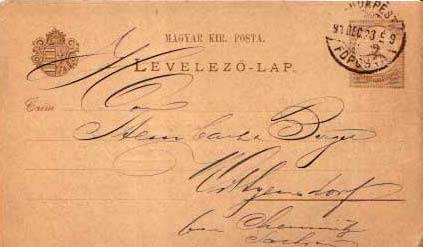 MAGYAR KIR. POSTA.
BUDAPEST
91 DEC. 23
FŐPOSTA
LEVELEZŐ-LAP.
Czim
Herrn
Berger
Wittgensdorf
bei Chemnitz
Sachsen